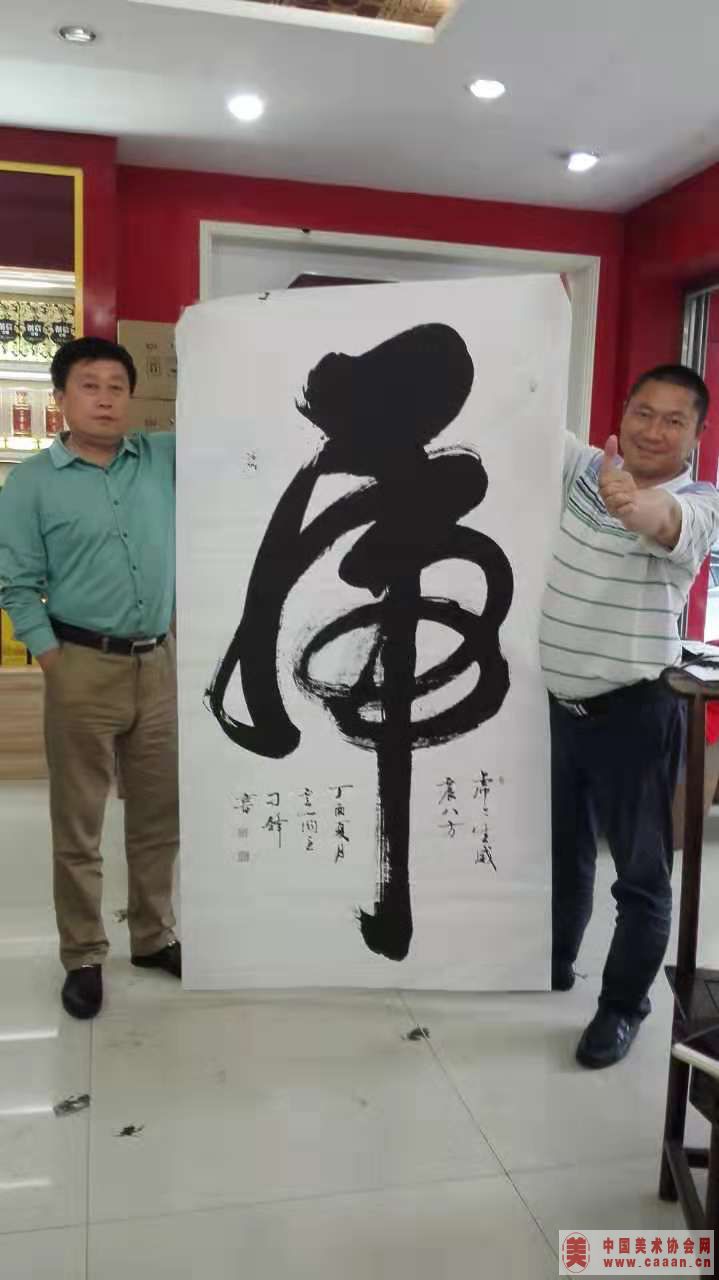 虎
虎虎生威
震八方
丁酉夏月
刁锋
书
中国美术协会网
www.caaan.cn